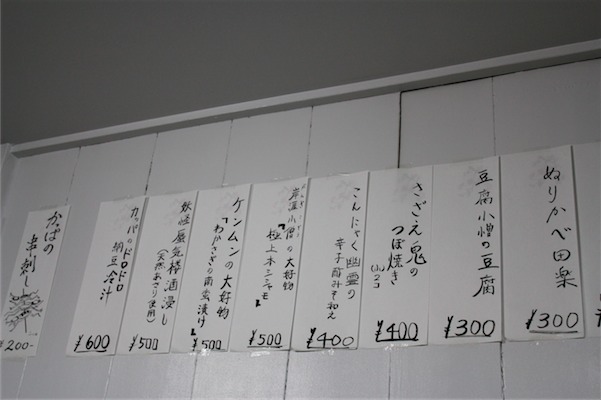 ぬりかべ田楽
¥300
豆腐小僧の豆腐
¥300
さざえ鬼の
つぼ焼き
¥400
こんにゃく幽霊の
辛子酢みそ和え
¥400
岸涯小僧の大好物
『極上本シシャモ』
¥500
ケンムンの大好物
『わかさぎの南蛮漬け』
¥500
妖怪蜃気楼酒浸し
(天然あさり使用)
¥500
カッパのドロドロ
納豆冷汁
¥600
かまいたちの
串刺し
¥200-